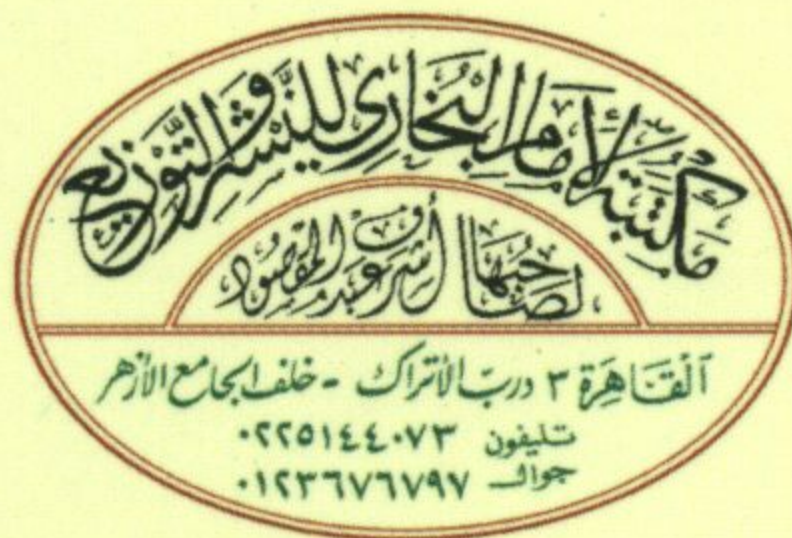 مَكْتَبَةُ الإِمَامِ البُخَارِي لِلنَّشْرِ وَالتَّوْزِيعِ
لصَاحِبهَا أشرف عبد المقصود
القَاهِرَة ٣ درب الأتراك - خلف الجامع الأزهر
تليفون ٠٢٢٥١٤٤٠٧٣
جوال ٠١٢٣٦٧٦٧٩٧